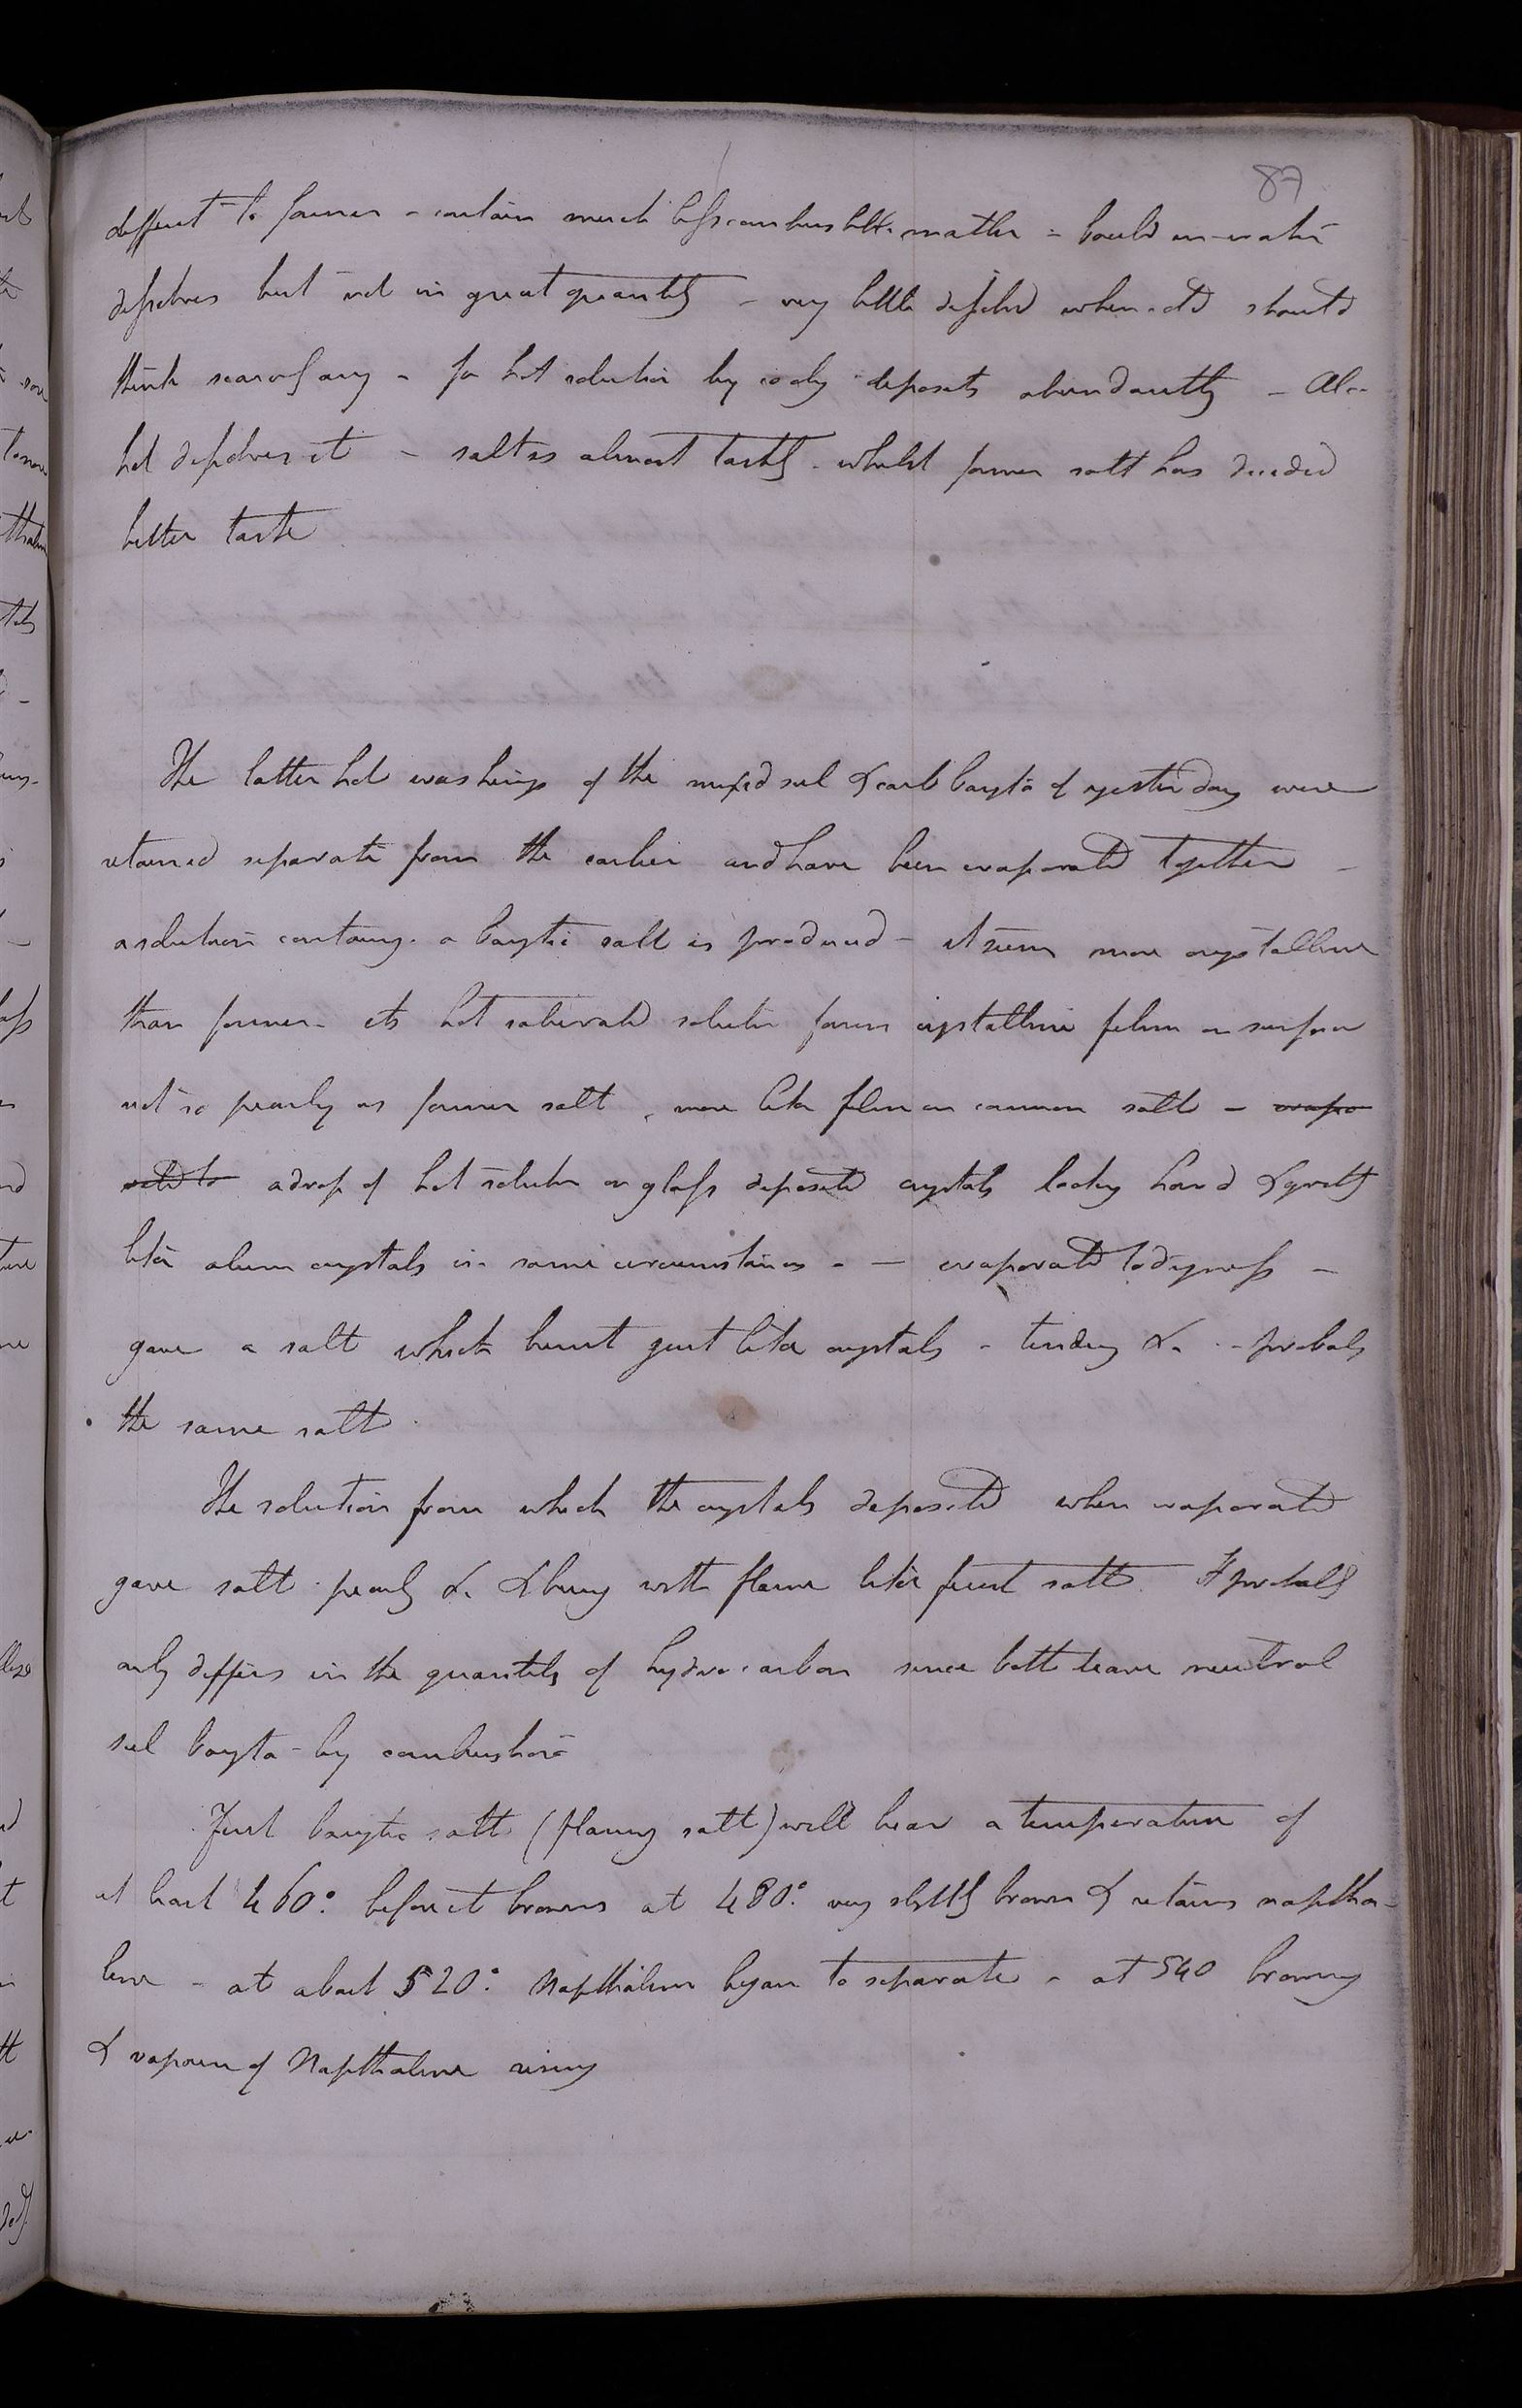 87
different to former - contains much less combustible matter - boiled in water
dissolves but not in great quantity - very little dissolved when cold should
think scarcely any - for hot solution by cooling deposits abundantly - Alco-
hol dissolves it - salt is almost tasteless - whilst former salt has decided
bitter taste
The latter hot washings of the mixed sul & carb baryta of yesterday were
retained separate from the earlier and have been evaporated together -
a solution containing a barytic salt is produced - it seems more crystalline
than former - its hot saturated solution forms crystalline film on surface
not so pearly as former salt, more like film on common salt - evapo
rated to a drop of hot solution on glass deposited crystals looking hard & gritty
like alum crystals in same circumstances - - evaporated to dryness -
gave a salt which burnt just like crystals - tindery &c - probably
the same salt
The solution from which the crystals deposited when evaporated
gave salt pearly &c & burng with flame like first salt. It probably
only differs in the quantity of hydro carbon since both leave neutral
sul baryta by combustion
First barytic salt (flaming salt) will bear a temperature of
at least 460° before it browns at 480° very slightly brown & retains naptha-
line - at about 520° Napthaline began to separate - at 540 browning
& vapour of Napthaline rising